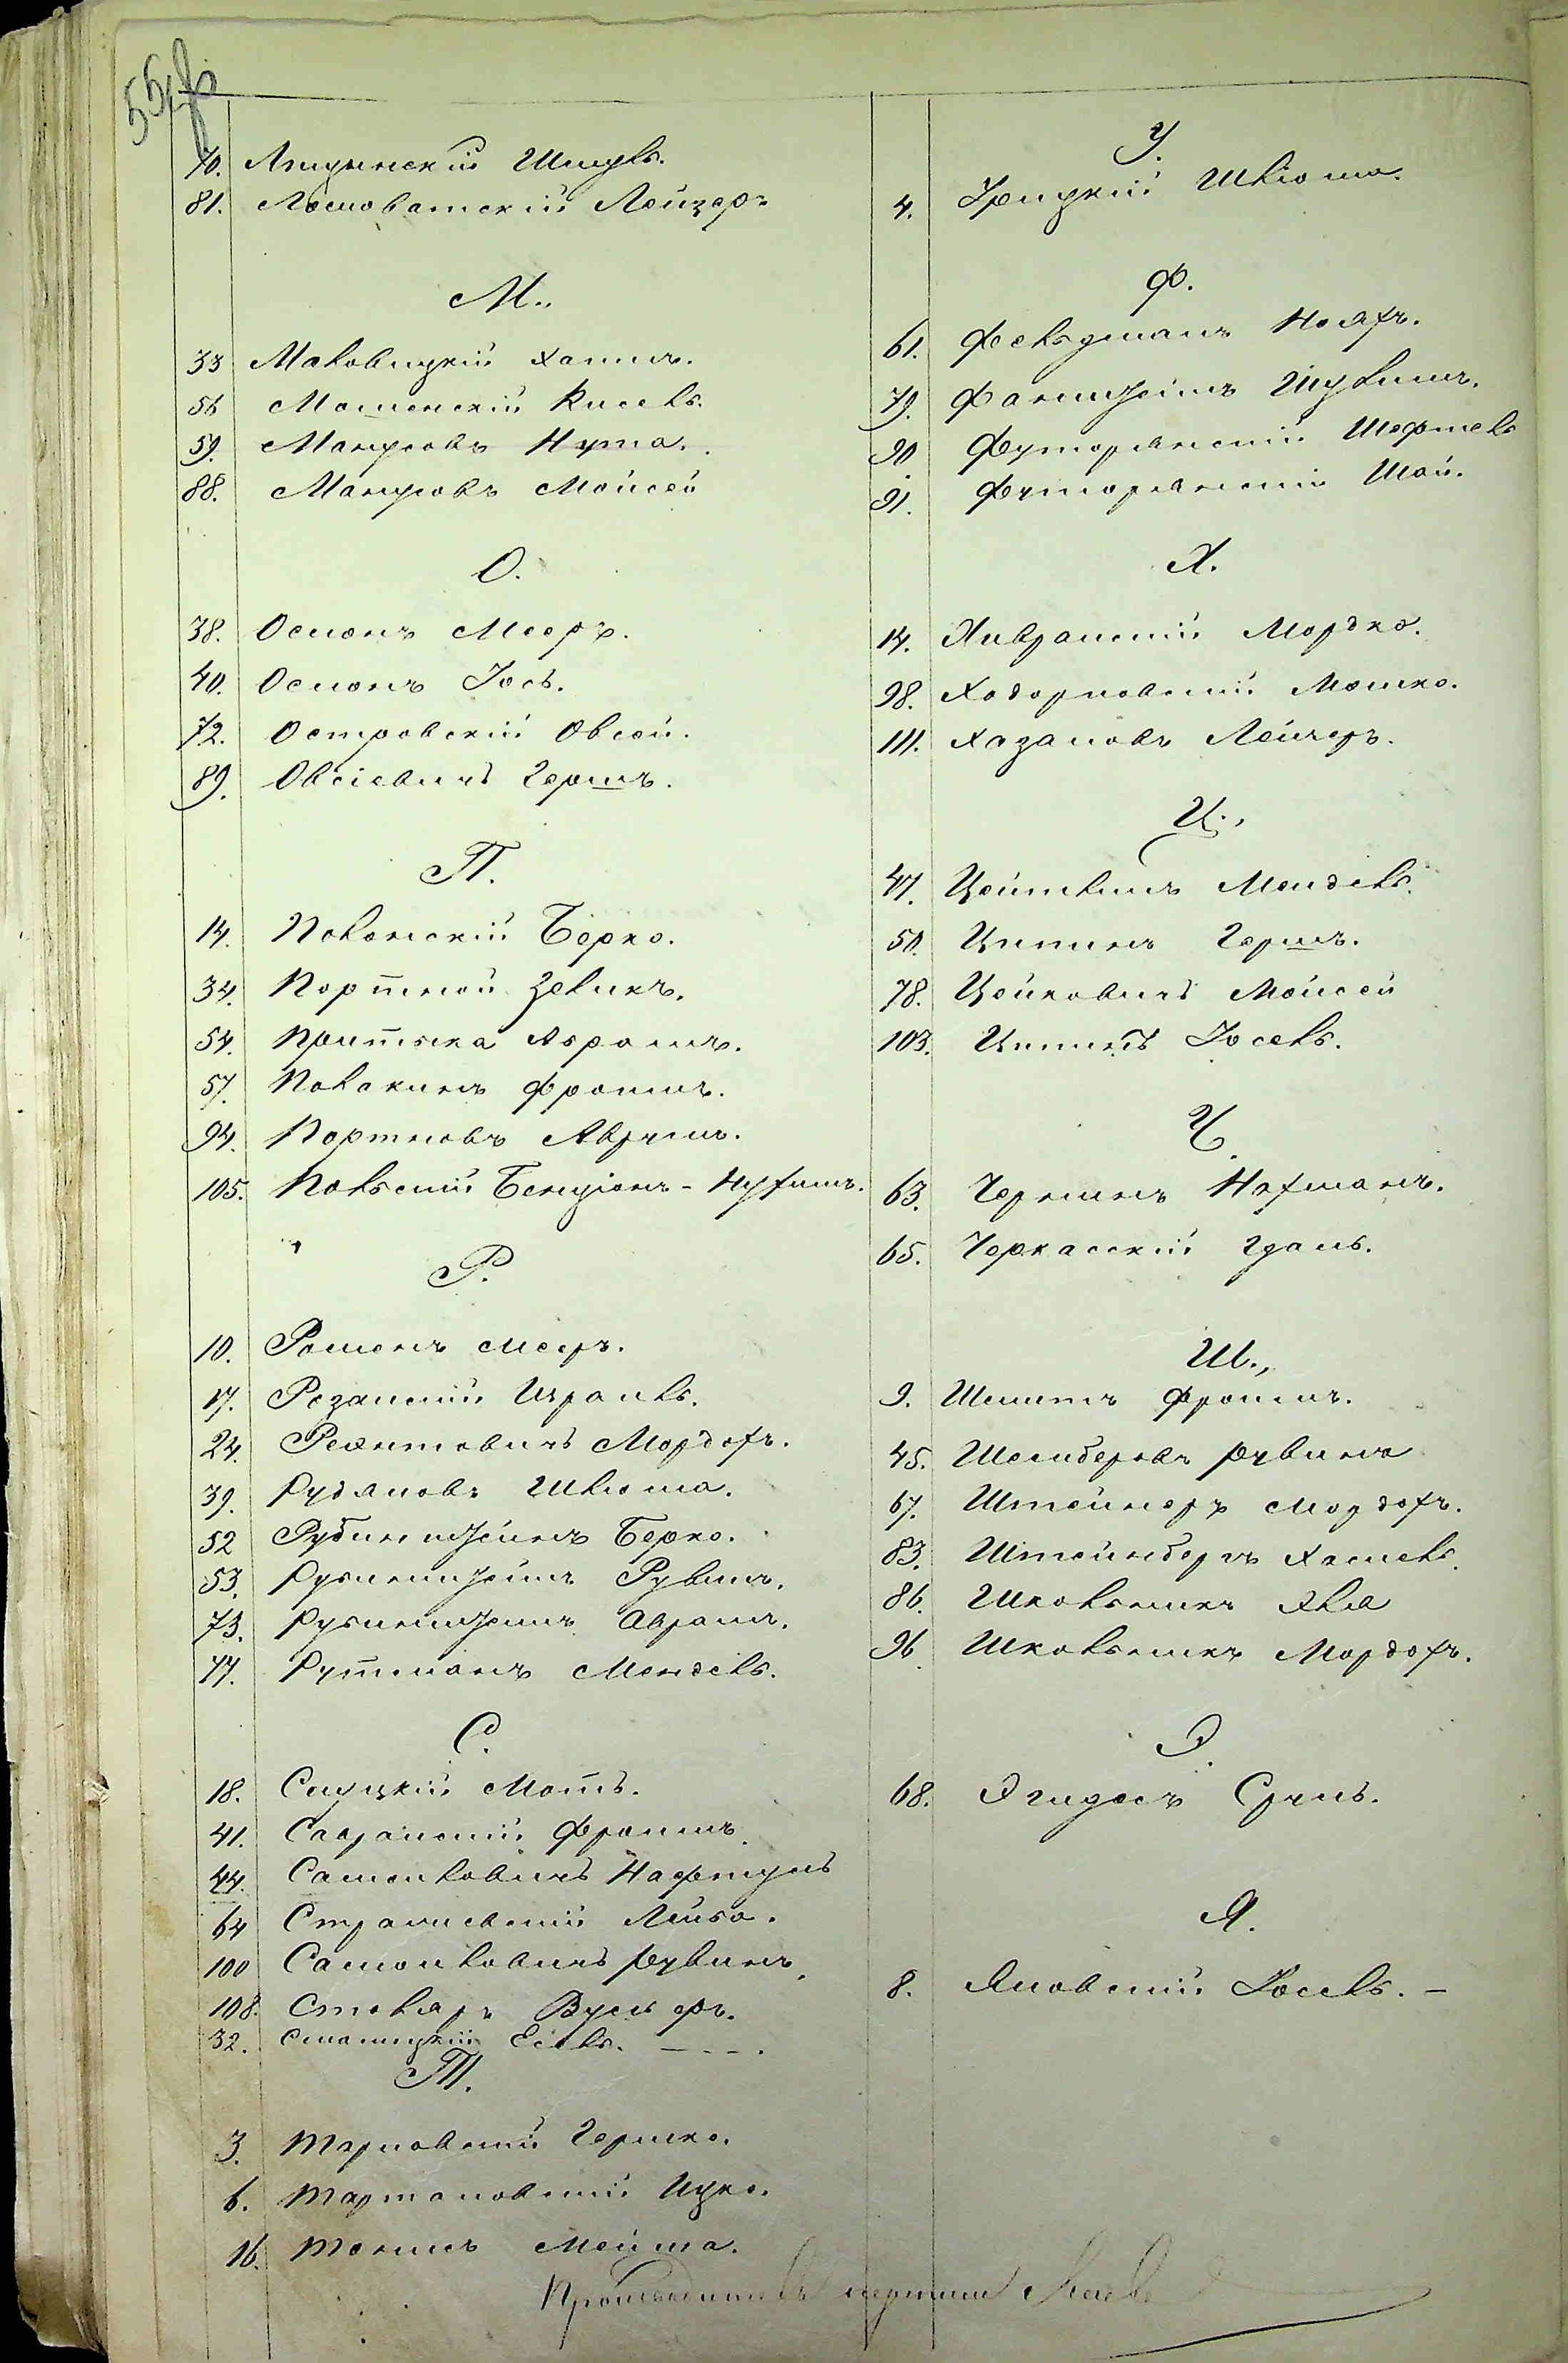 70. Липинскій Шмуль.
81. Лесноватскій Лейзеръ
М.
33 Маловицкій Хаимъ.
56 Мошенскій Кисель.
59. Манусовъ Нута.
88. Манусовъ Мойсей
О.
38. Осмонъ Мееръ.
40. Осмонъ Іось.
72. Островскій Овсей.
89. Овсіевичъ Гершъ.
П.
14. Полонскій Берко.
34. Портной Зеликъ.
54. Притыка Аврамъ.
57. Полакинъ Фроимъ.
94. Портновъ Аврумъ.
105. Польскій Бенціонъ-Нухимъ.
Р.
10. Роменъ Мееръ.
17. Резанскій Израиль.
24. Реентовичъ Мордохъ.
39. Рудяковъ Шліома.
52 Рубинштейнъ Берко.
53. Рубинштейнъ Рувинъ.
73. Рубинштейнъ Аврамъ.
77. Рутманъ Мендель.
С.
18. Слуцкій Моть.
41. Савранскій Фроимъ.
44. Самойловичъ Нафтулъ
64 Странчевскій Лейба.
100 Самойловичъ Рувинъ.
108. Столяръ Вульфъ.
32. Смоницкій Еіль.
Т.
3. Тарновскій Гершко.
6. Тартаковскій Ицко.
16. Тонинъ Мейша.
У.
4. Урицкій Шліома.
Ф.
61. Фельдманъ Нояхъ.
79. Файнштейнъ Шулимъ.
90 Футорянскій Шефтель
91. Футорянскій Шай.
Х.
14. Хивранскій Мордко.
98. Ходорковскій Мошко.
111. Хазановъ Лейзеръ.
Ц.
47. Цейтлинъ Мендель.
50. Ципинъ Гершъ.
78. Цейковичъ Мойсей
103. Ципинъ Іосель.
Ч.
63. Чернинъ Нахманъ.
65. Черкасскій Гдаль.
Ш.
9. Шмитъ Фроимъ.
45. Шейнбергъ Рувинъ
67. Штейнеръ Мордохъ.
83. Штейнбергъ Хаскель.
86. Школьникъ Эля
96. Школьникъ Мордохъ.
Э.
68. Эгидесъ Сруль.
Я.
8. Яновскій Іосель.